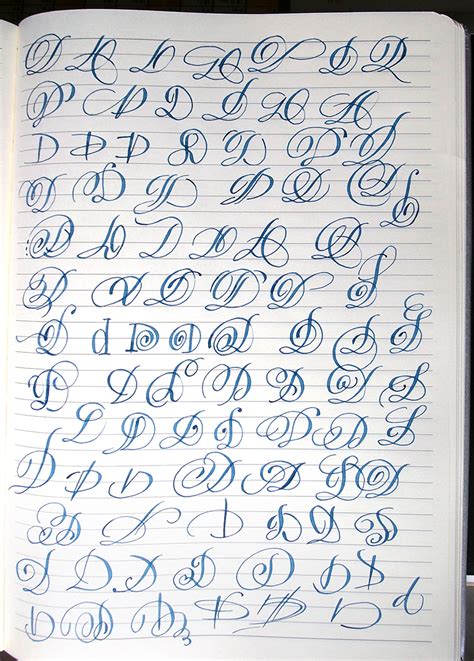 D D D D D D D
D D D D D D D
D D D D D D D
D D D D D D D
D D D D D D
D D D D D D
D d D D D D D D D
D D D D D D D D
D D D D D D D
D D D D D D D D
D D D D D D
D D D D D D D
D D D D D D D d